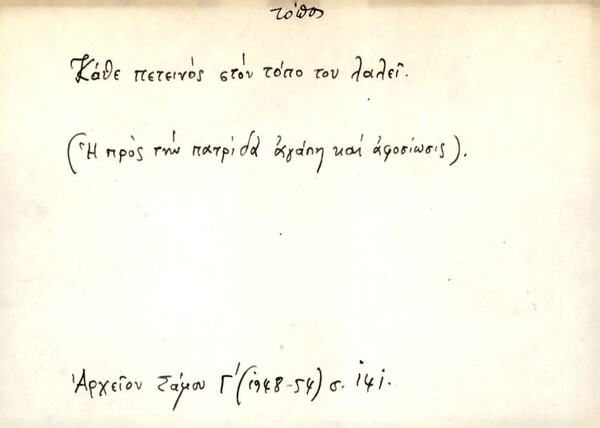 τόπος
Κάθε πετεινὸς στὸν τόπο του λαλεῖ.
(Ἡ πρὸς τὴν πατρίδα ἀγάπη καὶ ἀφοσίωσις).
Ἀρχεῖον Σάμου Γ΄ (1948-54) σ. 141.